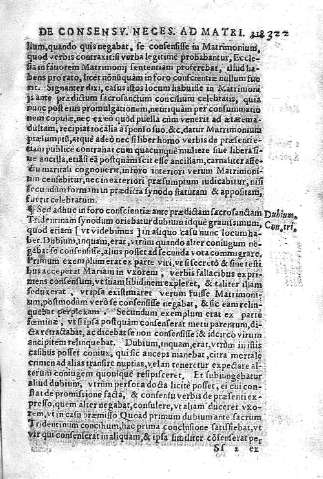 DE CONSENSV. NECES. AD MATRI. 328 322
lium, quando quis negabat, se consensisse in Matrimonium,
quod verbis contraxit: si verba legitimè probabantur, Eccle-
sia in fauorem Matrimonij sententiam proferebat, illud ha-
bens pro rato, licet nonnūquam in foro conscientiæ nullum fue
rit. Signanter dixi, casus istos locum habuisse in Matrimoni
js ante prædictum sacrosanctum concilium celebratis, quia
nunc post eius promulgationem, neutiquam per consummatio
nem copulæ, nec ex eo quod puella cùm venerit ad ætatem a
dultam, recipiat localia à sponso suo, &c, datur Matrimonium
præsumptū, etque adeò nec si liber homo verbis de præsenti
liari publicè contrahat cum quacunque muliere siue libera si-
ue ancilla, etiāsi ea postquam sciat esse ancillam, carnaliter affe-
ctu maritali cognouerit, in foro interiori verum Matrimoni
um censebitur, nec in exteriori præsumptiuum iudicabitur, nisi
secundùm formam in prædicta synodo statutam & appositam,
fuerit celebratum.
¶ Sed adhuc in foro conscientiæ ante prædictam sacrosanctam Dubium.
Tridentinam synodum oriebatur dubium idque grauissimum, Con,tri.
quod etiam [vt videbimus] in aliquo casu nunc locum ha-
ber. Dubium, inquam, erat, vtrùm quando alter coniugum ne-
gabat se consensisse, alius posset ad secunda vota commigrare.
Primum exemplum erat ex parte viri, vt si secretò & sine testi
bus acceperat Mariam in vxorem, verbis fallacibus expri-
mens consensum, vt suam libidinem expleret, & taliter illam
seduxerat, vt ipsa existimaret verum fuisse Matrimoni-
um, postmodùm verò se consensisse negabat, & sic eam relin-
quebat perplexam. Secundum exemplum erat ex parte
fœminæ, vt si ipsa postquàm consenserat metu parentum, di-
cta retractabat, ac dicebat se non consensisse: & idcirco virum
ancipitem relinquebat. Dubium, inquam, erat, vtrùm in istis
casibus posset coniux, qui sic anceps manebat, citra mortale
crimen ad alias transire nuptias, vel an teneretur expectare al-
terum coniugem quousque resipisceret. Et subiungebatur
aliud dubium, vtrùm persona docta licitè posset, ei cui con-
stat de promissione facta, & consensu verbis de præsenti ex-
presso, quem alter negabat, consulere, vt aliam duceret vxo-
rem, vt in casu præmisso Quoad primum dubium ante sacrum
Tridentinum concilium, hac prima conclusione satisfiebat, vt
vir qui consenserat in aliquam, & ipsa similiter cōsenserat per
Sf 2 ei